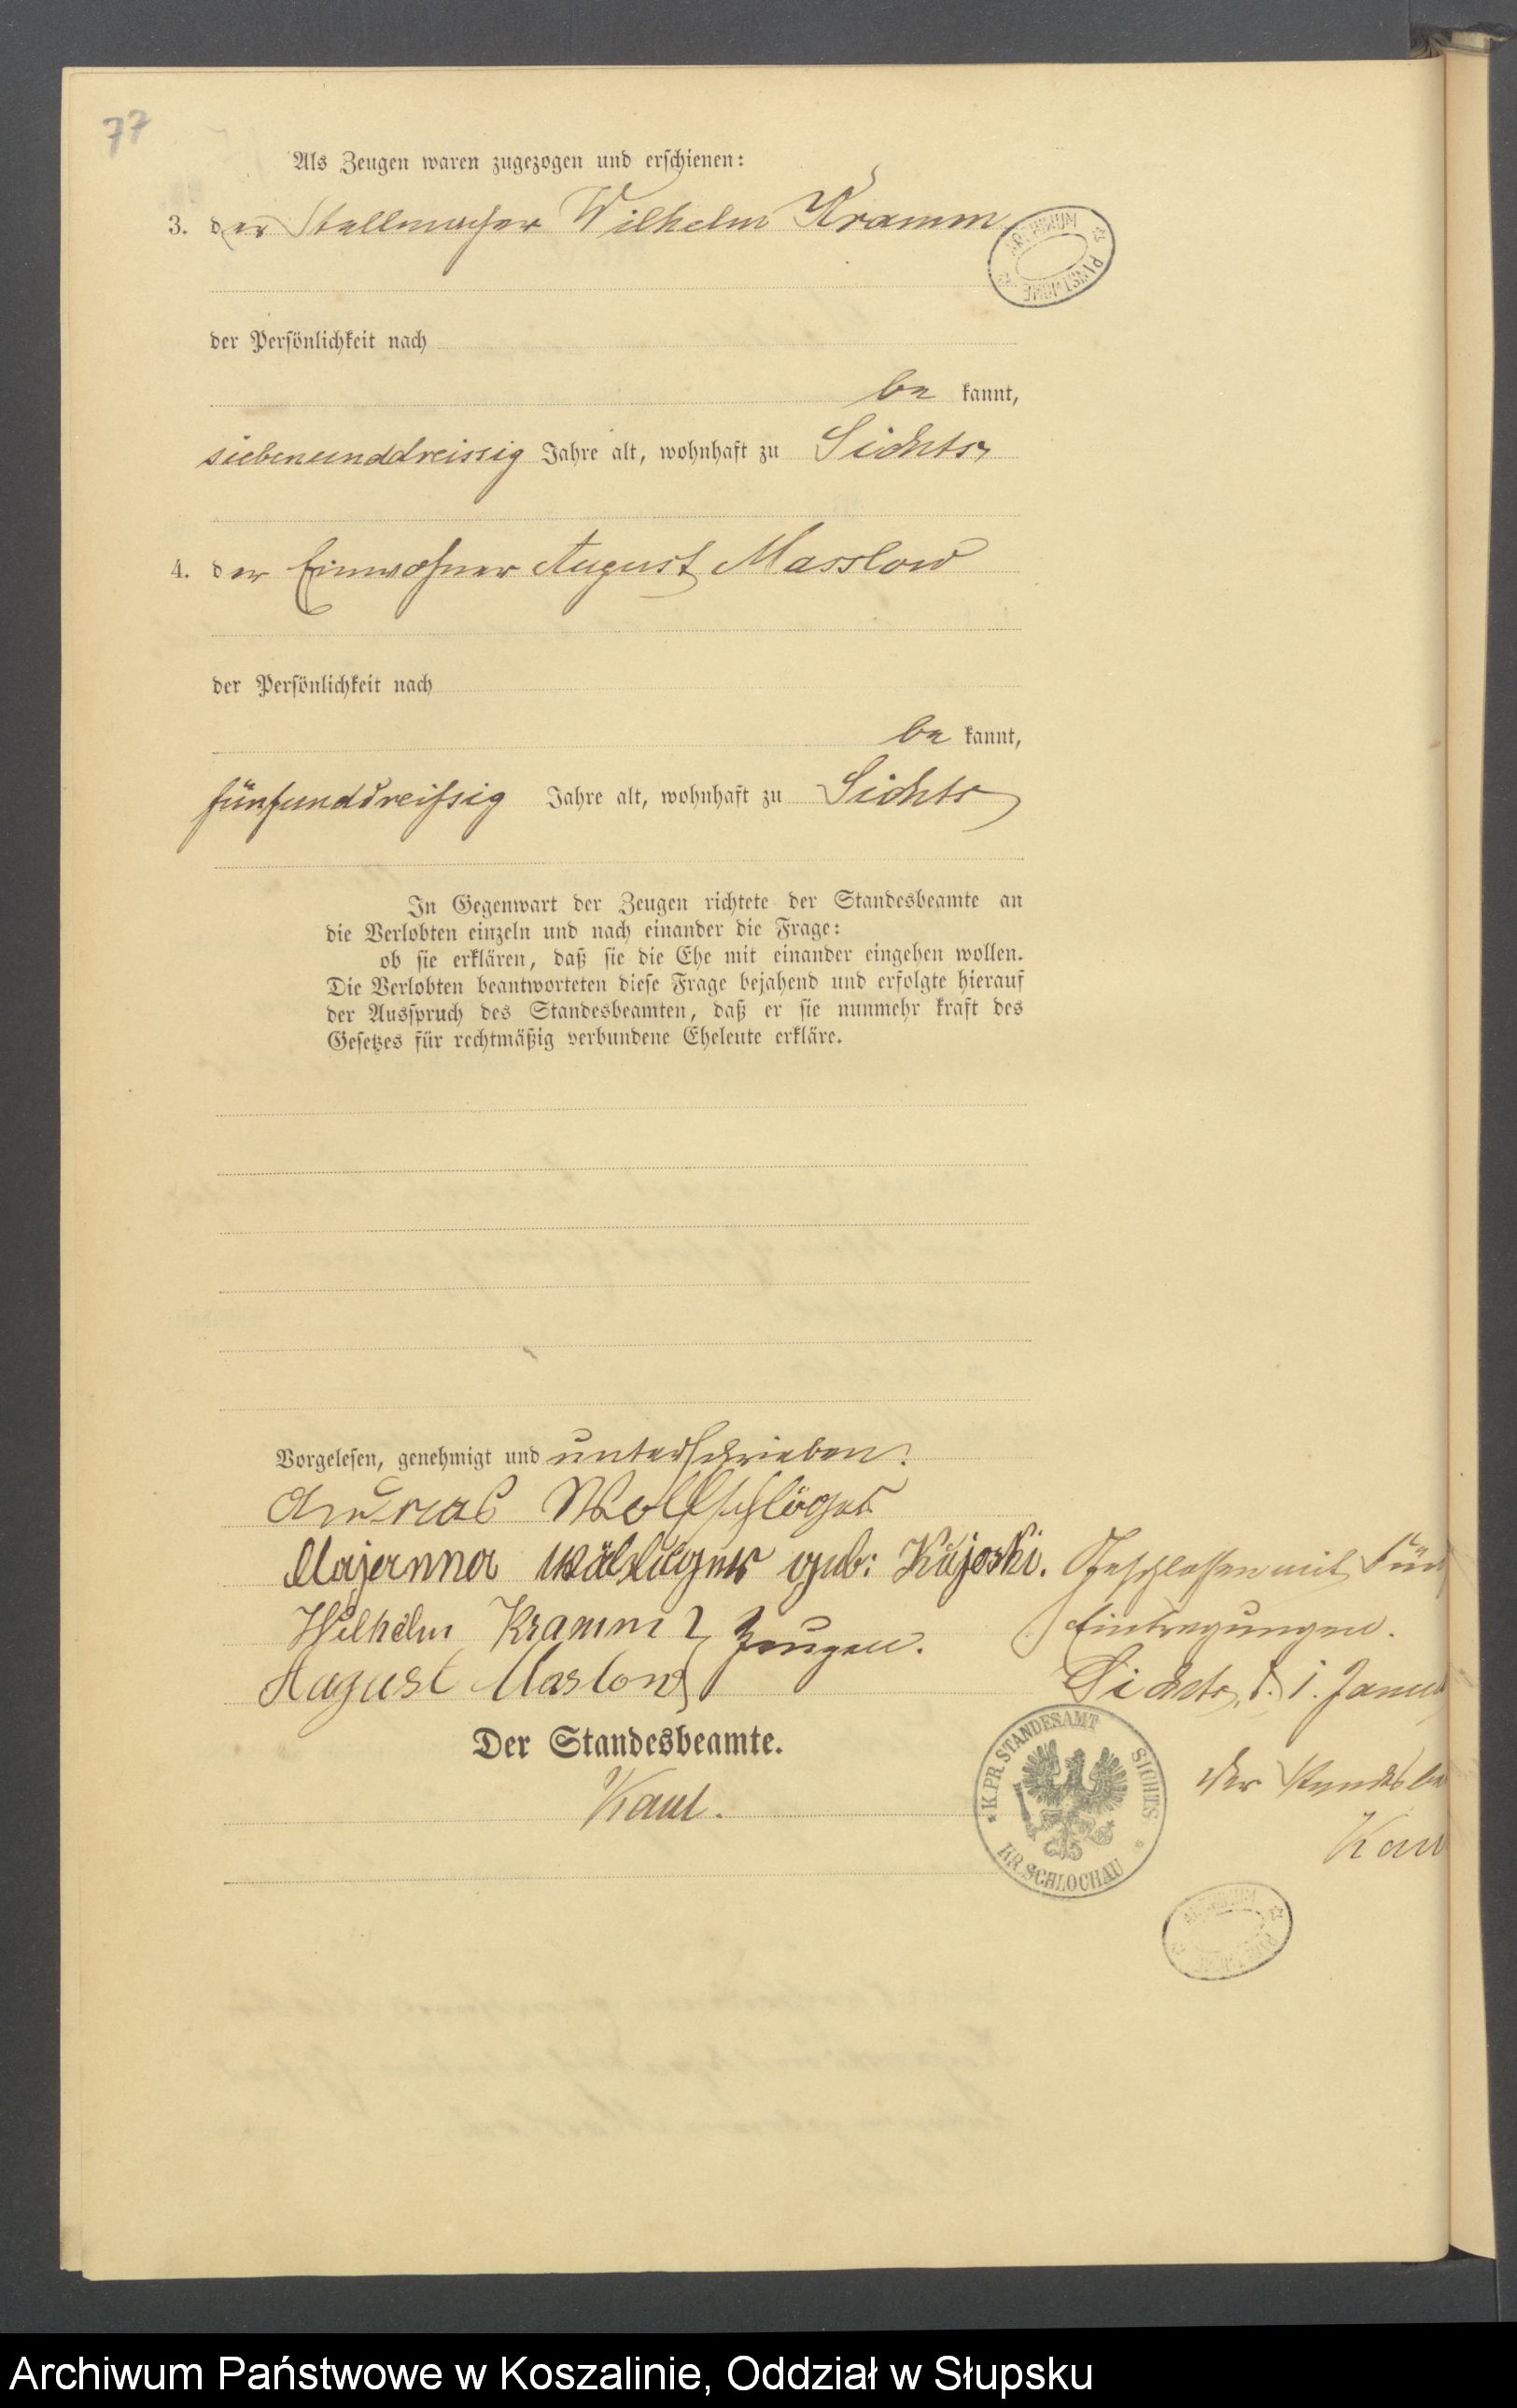 77
Als Zeugen waren zugezogen und erschienen:
3. der Stellmacher Wilhelm Kramm
der Persönlichkeit nach
be kannt,
siebenunddreissig Jahre alt, wohnhaft zu Sichts
4. der Einwohner August Masslow
der Persönlichkeit nach
be kannt,
fünfunddreißig Jahre alt, wohnhaft zu Sichts
In Gegenwart der Zeugen richtete der Standesbeamte an
die Verlobten einzeln und nach einander die Frage:
ob sie erklären, daß sie die Ehe mit einander eingehen wollen.
Die Verlobten beantworteten diese Frage bejahend und erfolgte hierauf
der Ausspruch des Standesbeamten, daß er sie nunmehr kraft des
Gesetzes für rechtmäßig verbundene Eheleute erkläre.
Vorgelesen, genehmigt und unterschrieben.
Andreas Wollschläger
Majanna geb: Kujoski.
Wilhelm Kramm } Zeugen.
August Maslow
Der Standesbeamte.
Kaul.
Geschlossen mit fün
Eintragungen.
Sichts, d. 1. Janua
Der Standesbe
Kau
K. PR. STANDESAMT SICHTS
KR. SCHLOCHAU
ARCHIWUM
Archiwum Państwowe w Koszalinie, Oddział w Słupsku